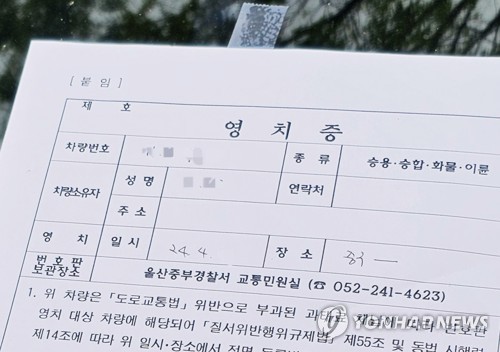 [ 붙 임 ]
제 호
영 치 증
차량번호 종 류 승용·승합·화물·이륜
차량소유자 성 명 연락처
주 소
영 치 일 시 24. 4. 장 소 중구
번 호 판 보관장소 울산중부경찰서 교통민원실 (☎ 052-241-4623)
1. 위 차량은 「도로교통법」 위반으로 부과된
영치 대상 차량에 해당되어 「질서위반행위규제법」 제55조 및 동법 시행령
제14조에 따라 위 일시·장소에서
YONHAP NEWS